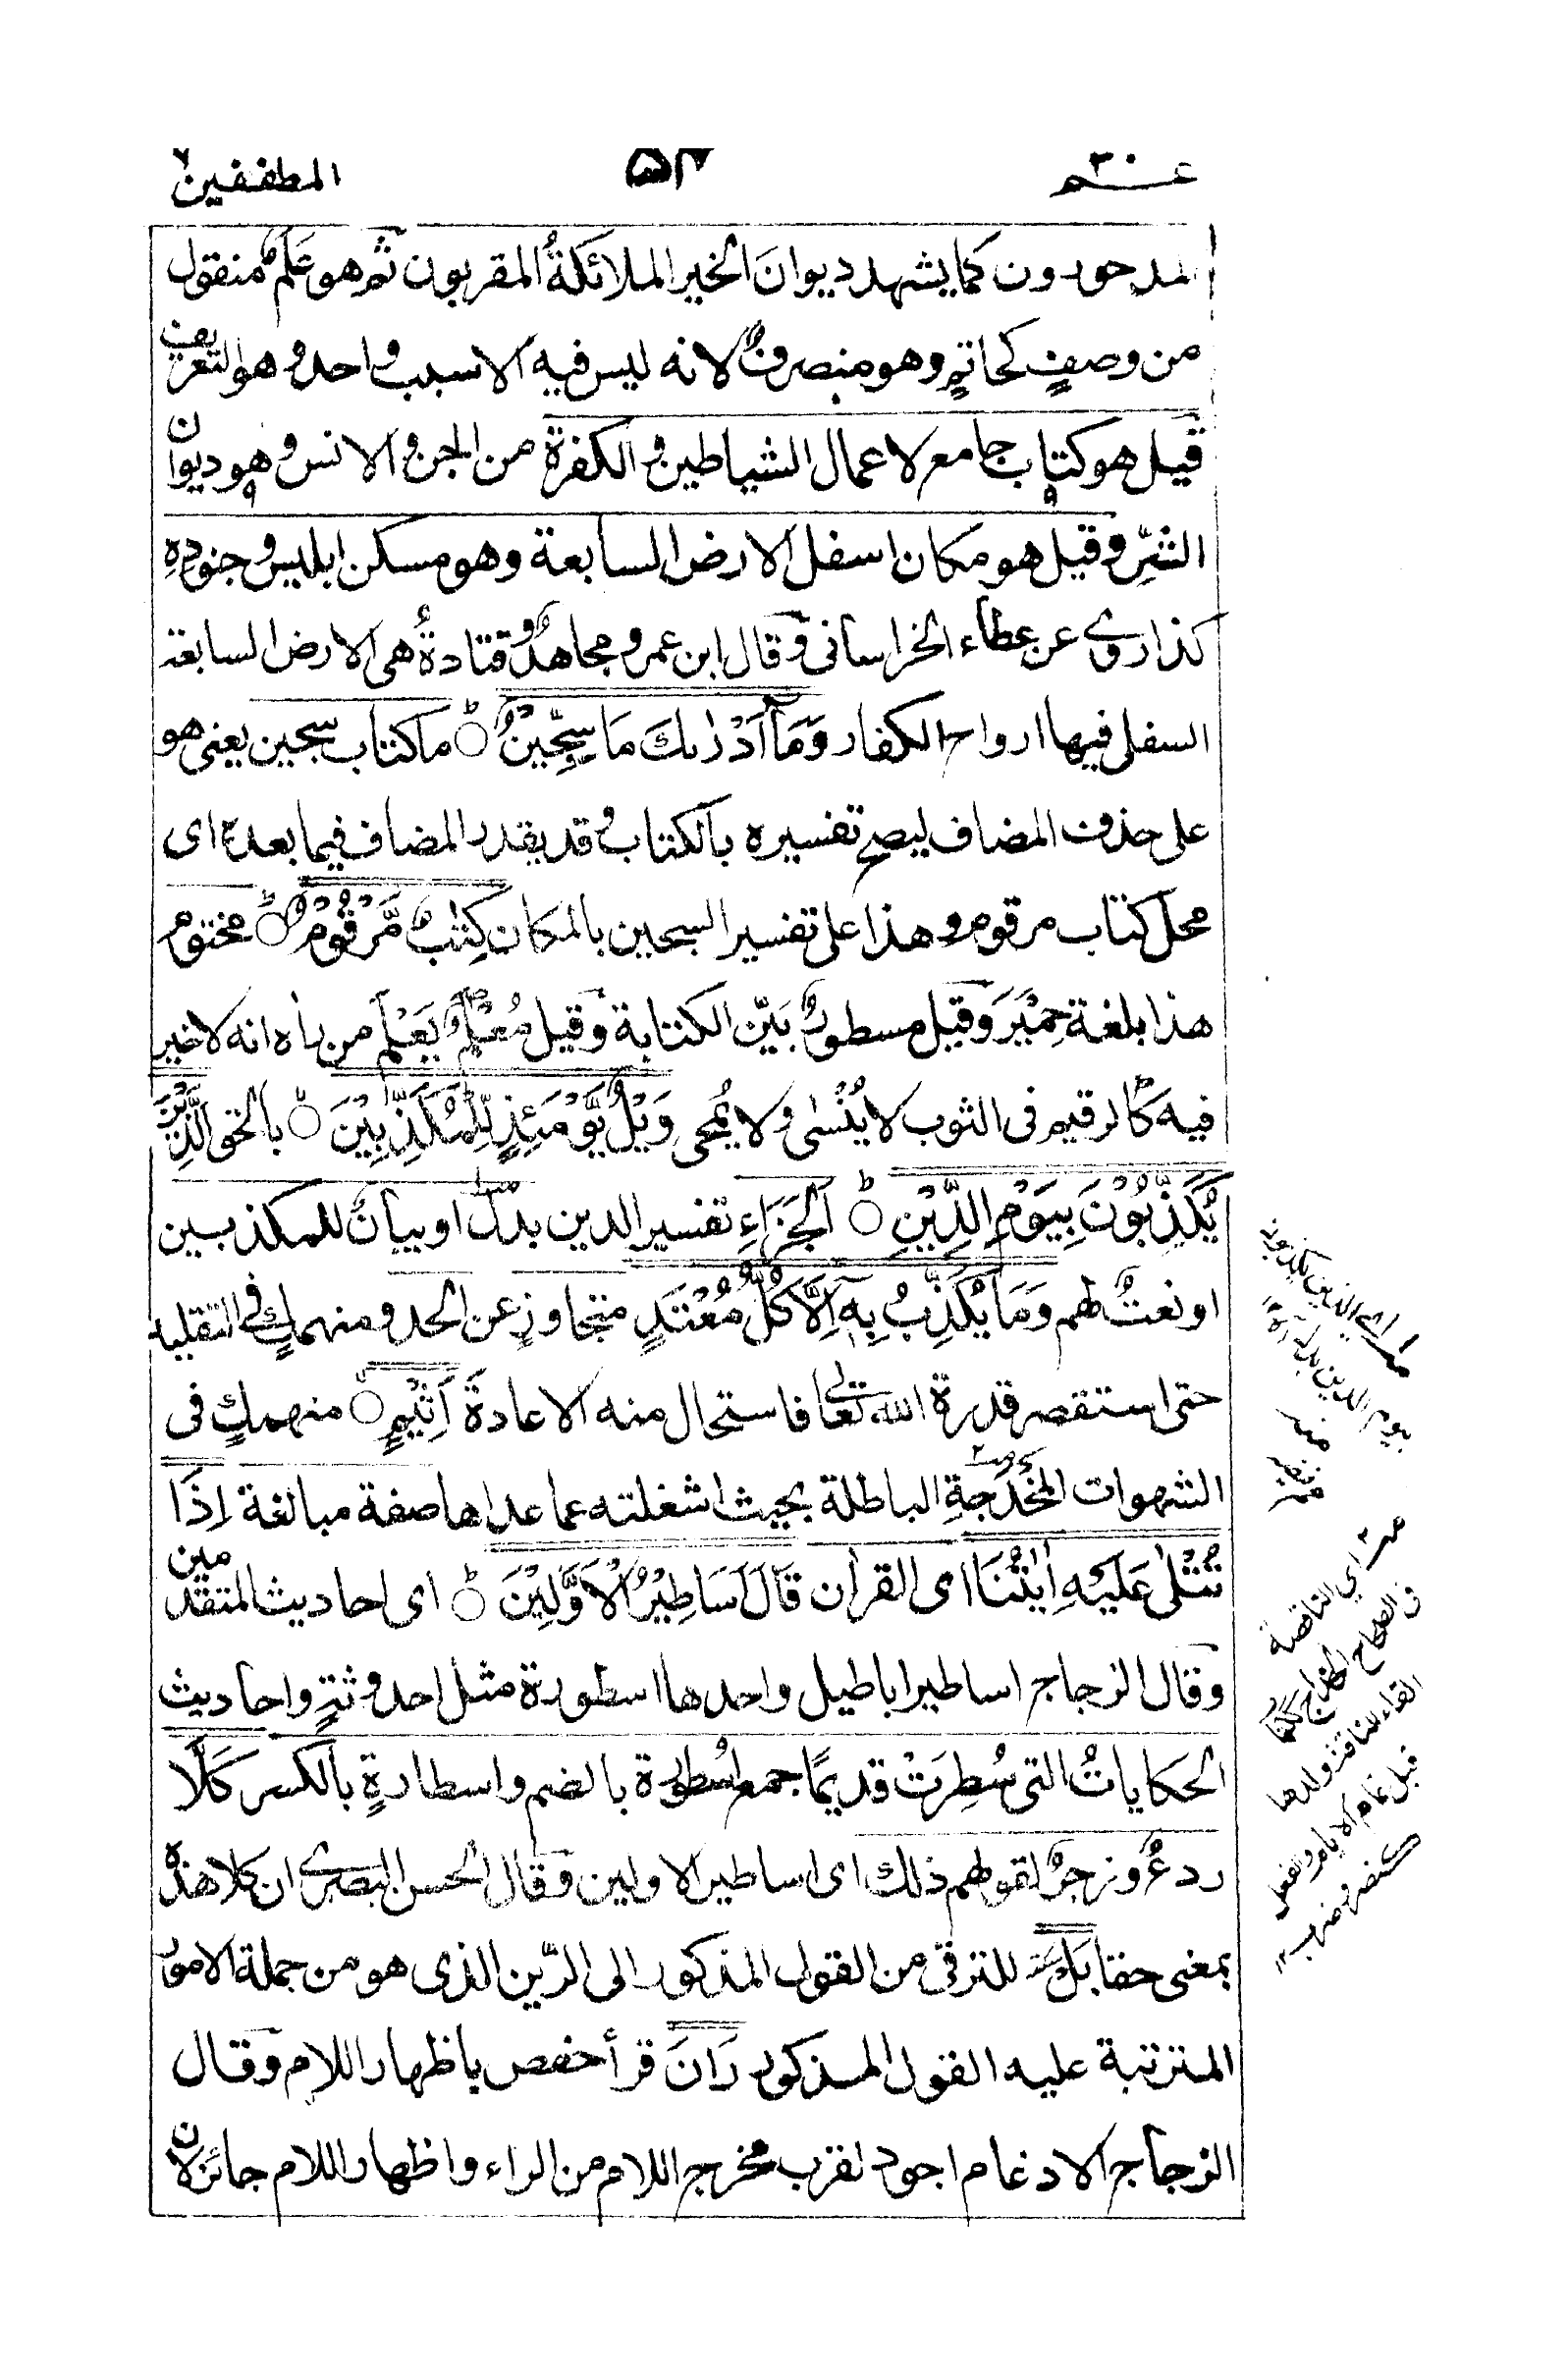 عم ٣٠
٥٢
المطففين
المدحورون كما يشهد ديوانَ الخير الملائكةُ المقربون ثم هو عَلَمٌ منقول
من وصفٍ كحاتمٍ وهو منصرفٌ لانه ليس فيه الا سبب واحد وهو التعريف
قيل هو كتاب جامع لاعمال الشياطين والكفرة من الجن والانس وهو ديوان
الشرِّ وقيل هو مكان اسفل الارض السابعة وهو مسكن ابليس وجنودِهِ
كذا روى عن عطاء الخراسانى وقال ابن عمر ومجاهدٌ وقتادةُ هى الارض السابعة
السفلى فيها ارواح الكفار وَمَآ اَدْرٰىكَ مَا سِجِّيْنٌ ۝ ما كتاب سجين يعنى هو
على حذف المضاف ليصح تفسيره بالكتاب وقد يقدر المضاف فيما بعده اى
محل كتاب مرقوم وهذا على تفسير السجين بالمكان كِتٰبٌ مَّرْقُوْمٌ ۝ مختوم
هذا بلغة حِمْيَرَ وقيل مسطورٌ بَيّن الكتابة وقيل مُعْلَمٌ يَعْلَم من راٰه انه لا خير
فيه كالرقيم فى الثوب لا يُنْسٰى ولا يُمحى وَيْلٌ يَّوْمَئِذٍ لِّلْمُكَذِّبِيْنَ ۝ بالحق الَّذِيْنَ
يُكَذِّبُوْنَ بِيَوْمِ الدِّيْنِ ۝ الجَزَاءِ تفسير الدين بدلٌ او بيانٌ للمكذبين
او نعتٌ لهم وَمَا يُكَذِّبُ بِهٖٓ اِلَّا كُلُّ مُعْتَدٍ متجاوزٍ عن الحد ومنهمكٍ فى التقليد
حتى استقصر قدرة الله تعالى فاستحال منه الاعادةَ اَثِيْمٍ ۝ منهمكٍ فى
الشهوات المُخْدَجةِ الباطلة بحيث اشغلته عما عداها صفة مبالغة اِذَا
تُتْلٰى عَلَيْهِ اٰيٰتُنَا اى القراٰن قَالَ اَسَاطِيْرُ الْاَوَّلِيْنَ ۝ اى احاديث المتقدمين
وقال الزجاج اساطير اباطيل واحدها اسطورة مثل احدوثةٍ واحاديث
الحكاياتُ التى سُطِرَتْ قديمًا جمع اُسْطورة بالضم واسطارةٍ بالكسر كَلَّا
ردعٌ وزجرٌ لقولهم ذلك اى اساطير الاولين وقال الحسن البصرى ان كلا هذه
بمعنى حقا بَلْ للترقى من القول المذكور الى الرّين الذى هو من جملة الامور
المترتبة عليه القول المذكور رَانَ قرأ حفص باظهار اللام وقال
الزجاج الادغام اجود لقرب مخرج اللام من الراء واظهار اللام جائز لان
اى الذين يكذبون
بيوم الدين بدل
اى الناقصة
فى الصحاح